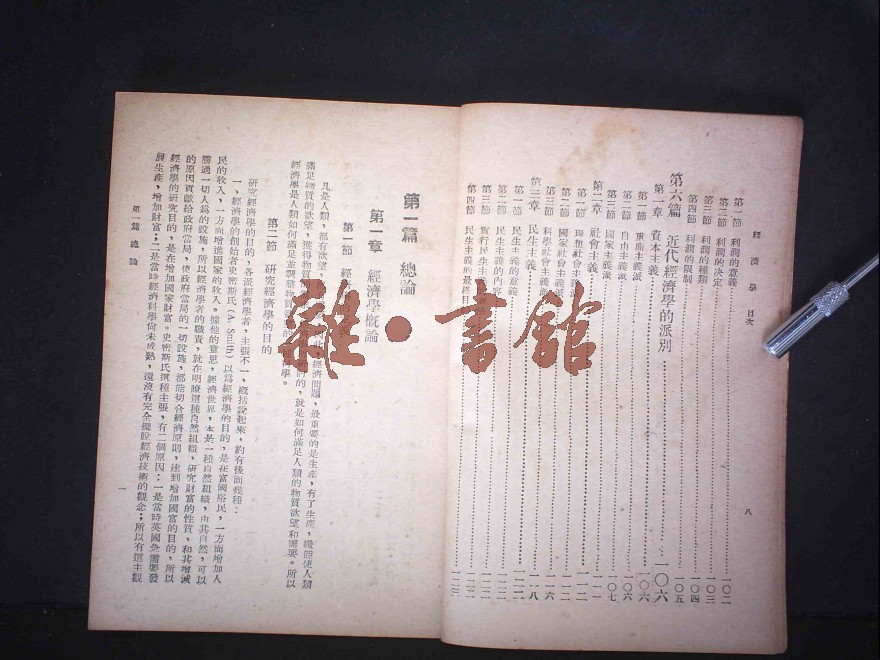 經濟學 目次
八
第一節 利潤的意義 一〇二
第二節 利潤的決定 一〇三
第三節 利潤的種類 一〇四
第四節 利潤的限制 一〇五
第六篇 近代經濟學的派別 一〇六
第一章 資本主義 一〇六
第一節 重商主義派 一〇六
第二節 自由主義派 一〇六
第三節 國家主義派 一〇七
第二章 社會主義 一一一
第一節 理想社會主義派 一一二
第二節 國家社會主義派 一一二
第三節 科學社會主義派 一一六
第三章 民生主義 一一八
第一節 民生主義的意義
第二節 民生主義的內容
第三節 實行民生主義
第四節 民生主義的最終目
雜·書館
第一篇 總論
第一章 經濟學概論
第一節 經
凡是人類，都有慾望，
經濟問題，最重要的是生產，有了生產，纔能使人類
滿足物質的欲望，獲得物質
的，就是如何滿足人類的物質欲望和需要。所以
經濟學是人類如何滿足並調整物質
學。
第二節 研究經濟學的目的
研究經濟學的目的，各派經濟學者，主張不一，概括說起來，約有後面幾種：
一、經濟學的創始者史密斯氏（A. Smith）以爲經濟學的目的，是在富國裕民，一方面增加人
民的收入，一方面增進國家的收入。據他的意思，經濟世界，本是一種自然組織，由其自然，可以
勝過一切人爲的設施，所以經濟學者的職責，就在明瞭這種自然組織，研究財富的性質，和其增減
的原因貢獻給政府當局，使政府當局的一切設施，都能切合經濟原則，達到增加國富的目的，所以
經濟學的研究目的，是在增加國家財富。史密斯氏這種主張，有二個原因：一是當時英國急需要發
展生產，增加財富；二是當時經濟科學尚未成熟，還沒有完全擺脫經濟技術的觀念；所以有這主觀
第一篇 總論
一